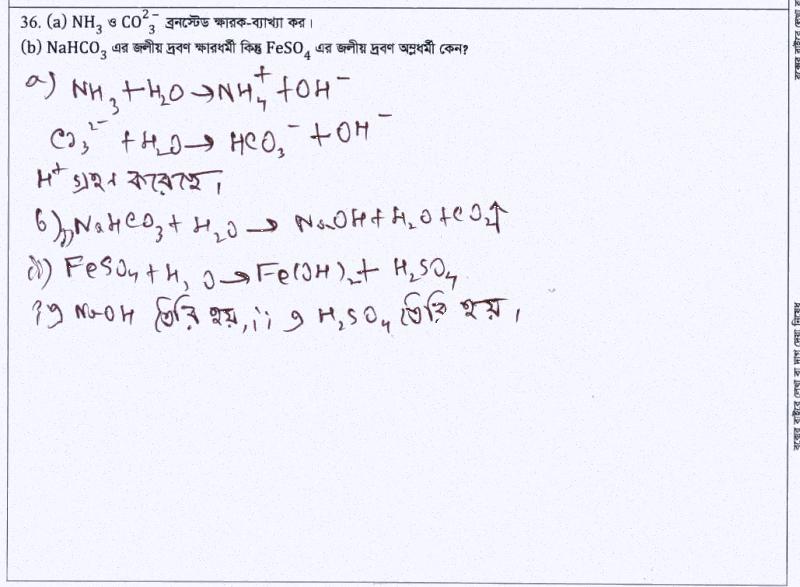 36. (a) NH₃ ও CO₃²⁻ ব্রনস্টেড ক্ষারক-ব্যাখ্যা কর।
(b) NaHCO₃ এর জলীয় দ্রবণ ক্ষারধর্মী কিন্তু FeSO₄ এর জলীয় দ্রবণ অম্লধর্মী কেন?
a) NH₃ + H₂O → NH₄⁺ + OH⁻
CO₃²⁻ + H₂O → HCO₃⁻ + OH⁻
H⁺ গ্রহণ করেছে।
b) i) NaHCO₃ + H₂O → NaOH + H₂O + CO₂↑
ii) FeSO₄ + H₂O → Fe(OH)₂ + H₂SO₄
i এ NaOH তৈরি হয়, ii এ H₂SO₄ তৈরি হয়।